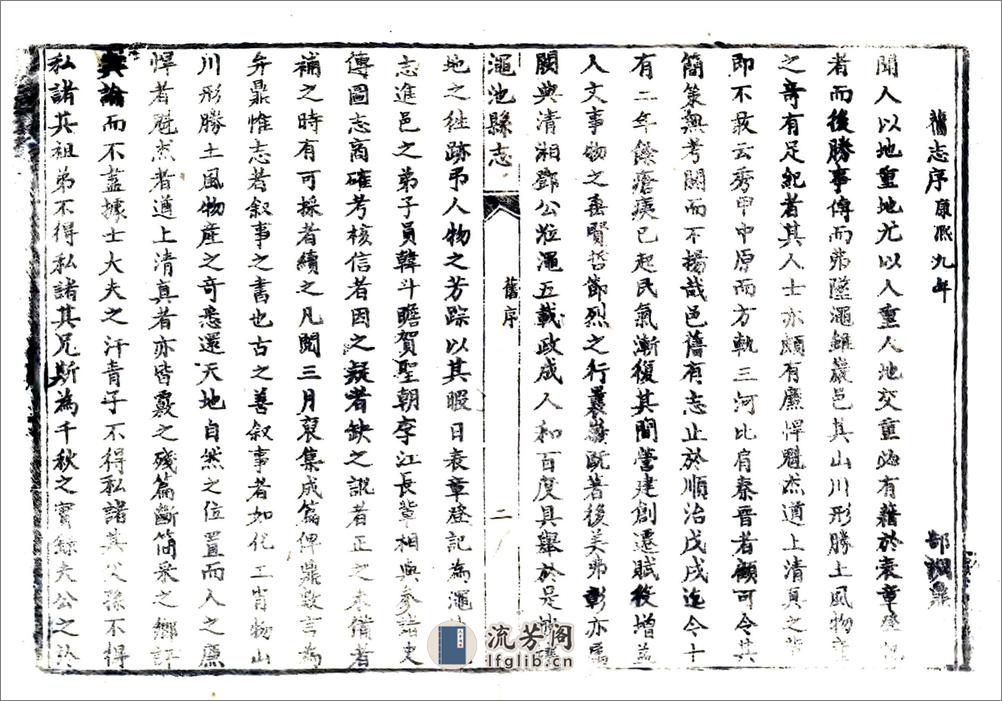 舊志序康熙九年 郜炳鼎
聞人以地重地尤以人重人地交重必有藉於表章登記
者而後勝事傳而弗墜澠雖巖邑其山川形勝土風物產
之奇有足紀者其人士亦頗有廉悍魁杰遒上清真之
即不敢云秀甲中原而方軌三河比肩秦晉者顧可令其
簡策無考闕而不揚哉邑舊有志止於順治戊戌迄今十
有二年餘瘡痍已起民氣漸復其間營建創遷賦役增益
人文事物之垂賢哲節烈之行曩嶶既著後美弗彰亦屬
闕典清湘鄧公蒞澠五載政成人和百度具舉於是
澠池縣志
舊序
二
地之往跡弔人物之芳踪以其暇日表章登記為澠
志進邑之弟子員韓斗瞻賀聖朝李江長輩相與參諸史
傳圖志商確考核信者因之疑者缺之訛者正之未備者
補之時有可採者續之凡閱三月裒集成篇俾鼎數言為
弁鼎惟志者叙事之書也古之善叙事者如化工肖物山
川形勝土風物產之奇悉還天地自然之位置而人之廉
悍者魁杰者遒上清真者亦皆覈之殘篇斷簡采之鄉評
輿論而不盡據士大夫之汗青子不得私諸其父孫不得
私諸其祖弟不得私諸其兄斯為千秋之實錄夫公之於
流芳阁
lfglib.cn